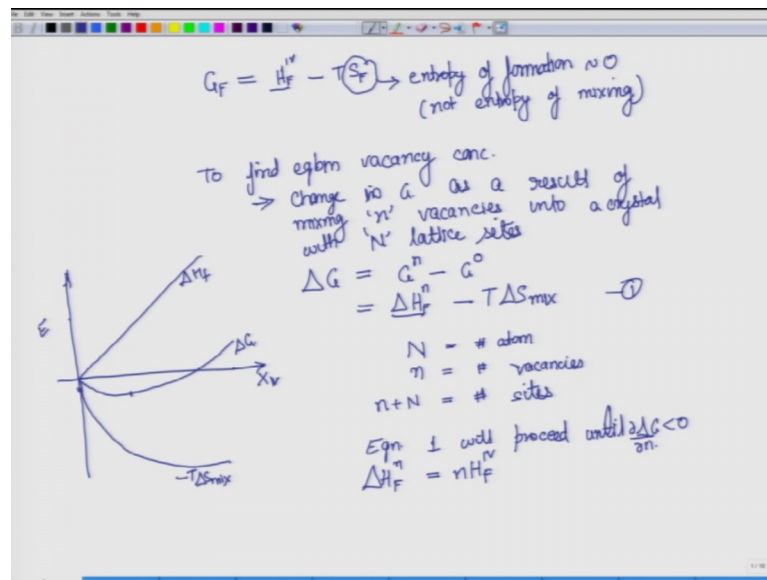 File Edit View Insert Actions Tools Help
G_F = H_F^{1v} - T S_F → entropy of formation ~ 0
(not entropy of mixing)
To find eqbm vacancy conc.
→ change in G as a result of
mixing 'n' vacancies into a crystal
with 'N' lattice sites
ΔG = G^n - G^0
= ΔH_F^n - TΔS_mix —①
N = # atom
n = # vacancies
n+N = # sites
Eqn. 1 will proceed until ∂ΔG/∂n < 0
ΔH_F^n = nH_F^{1v}
ΔH_f
E
ΔG
X_v
-TΔS_mix